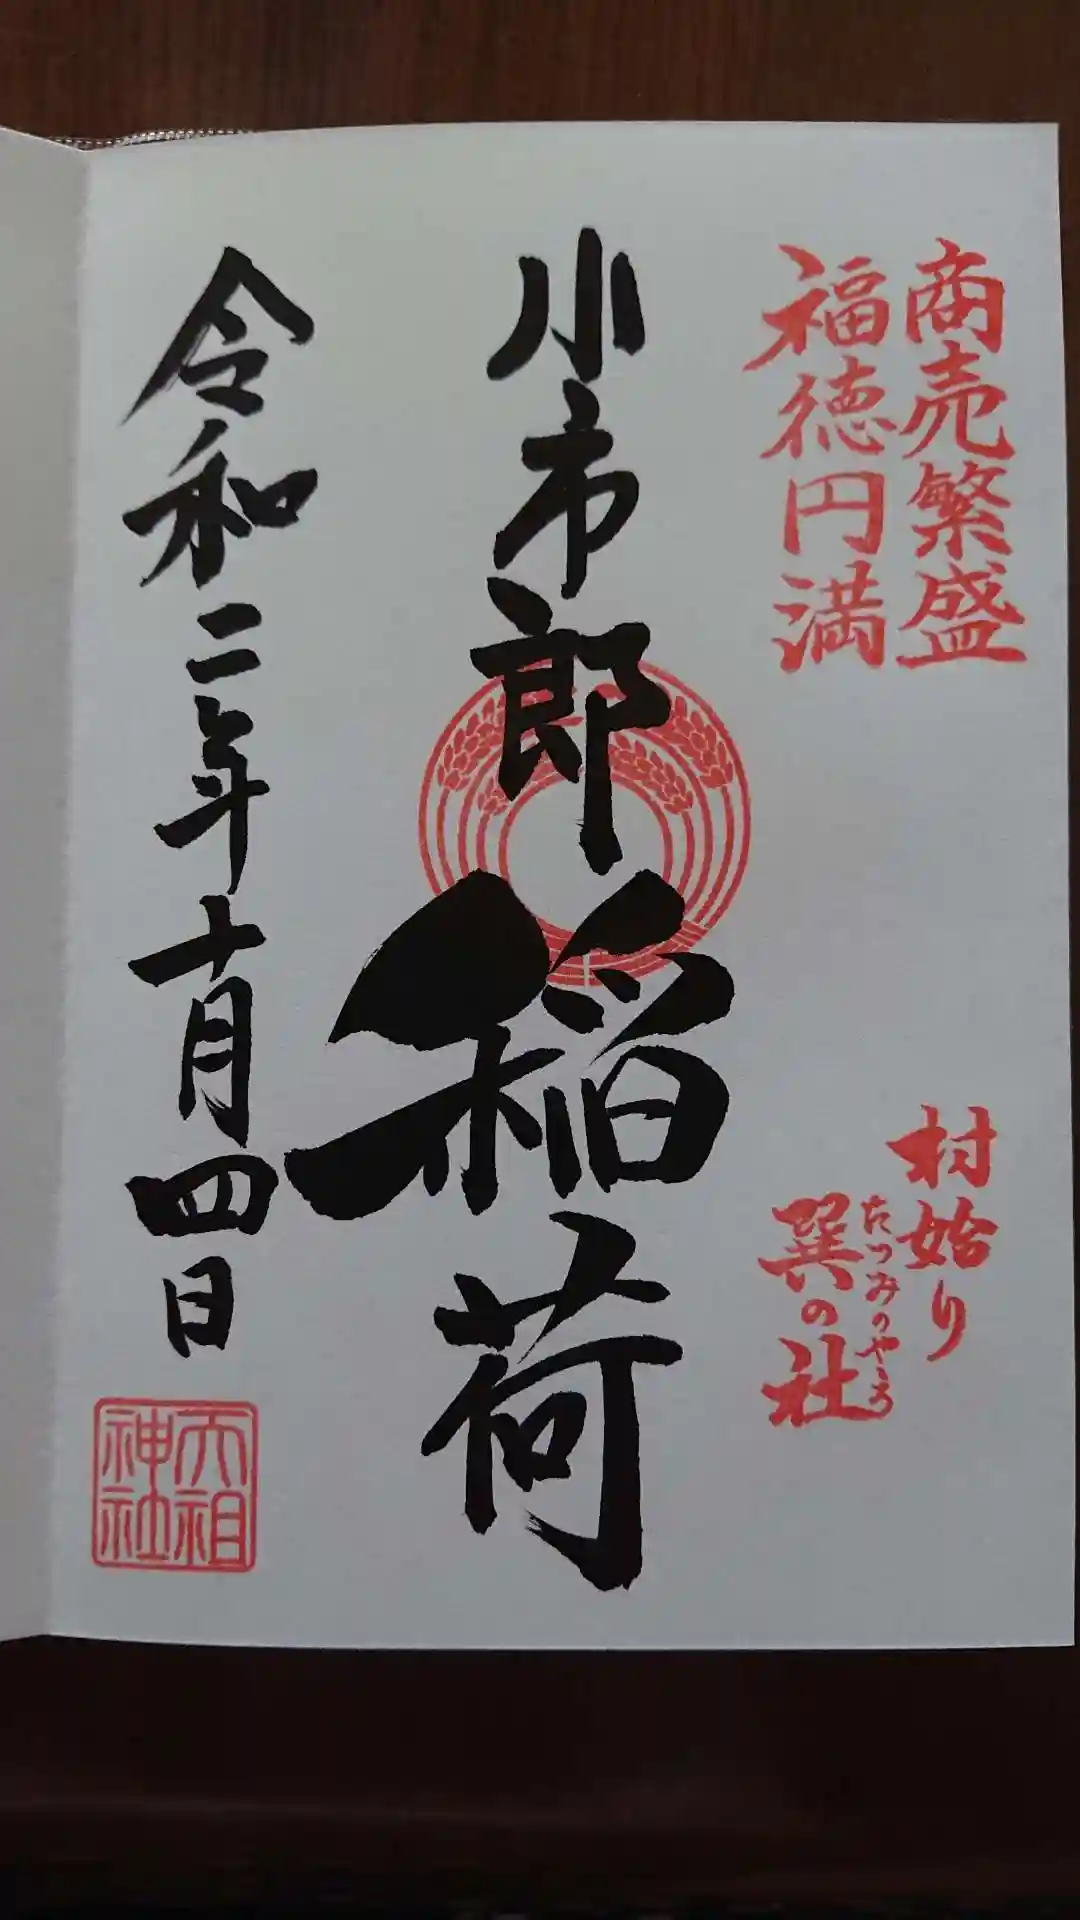 商売繁盛
福徳円満
村始り
たつみのやしろ
巽の社
小市郎稲荷
令和二年十月四日
天祖
神社